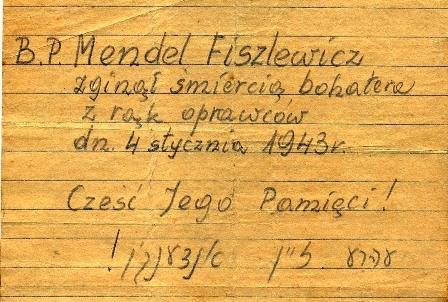 B.P. Mendel Fiszlewicz
zginął śmiercią bohatera
z rąk oprawców
dn. 4 stycznia 1943 r.
Cześć Jego Pamięci!
ערע זײַן אָנדענקען!